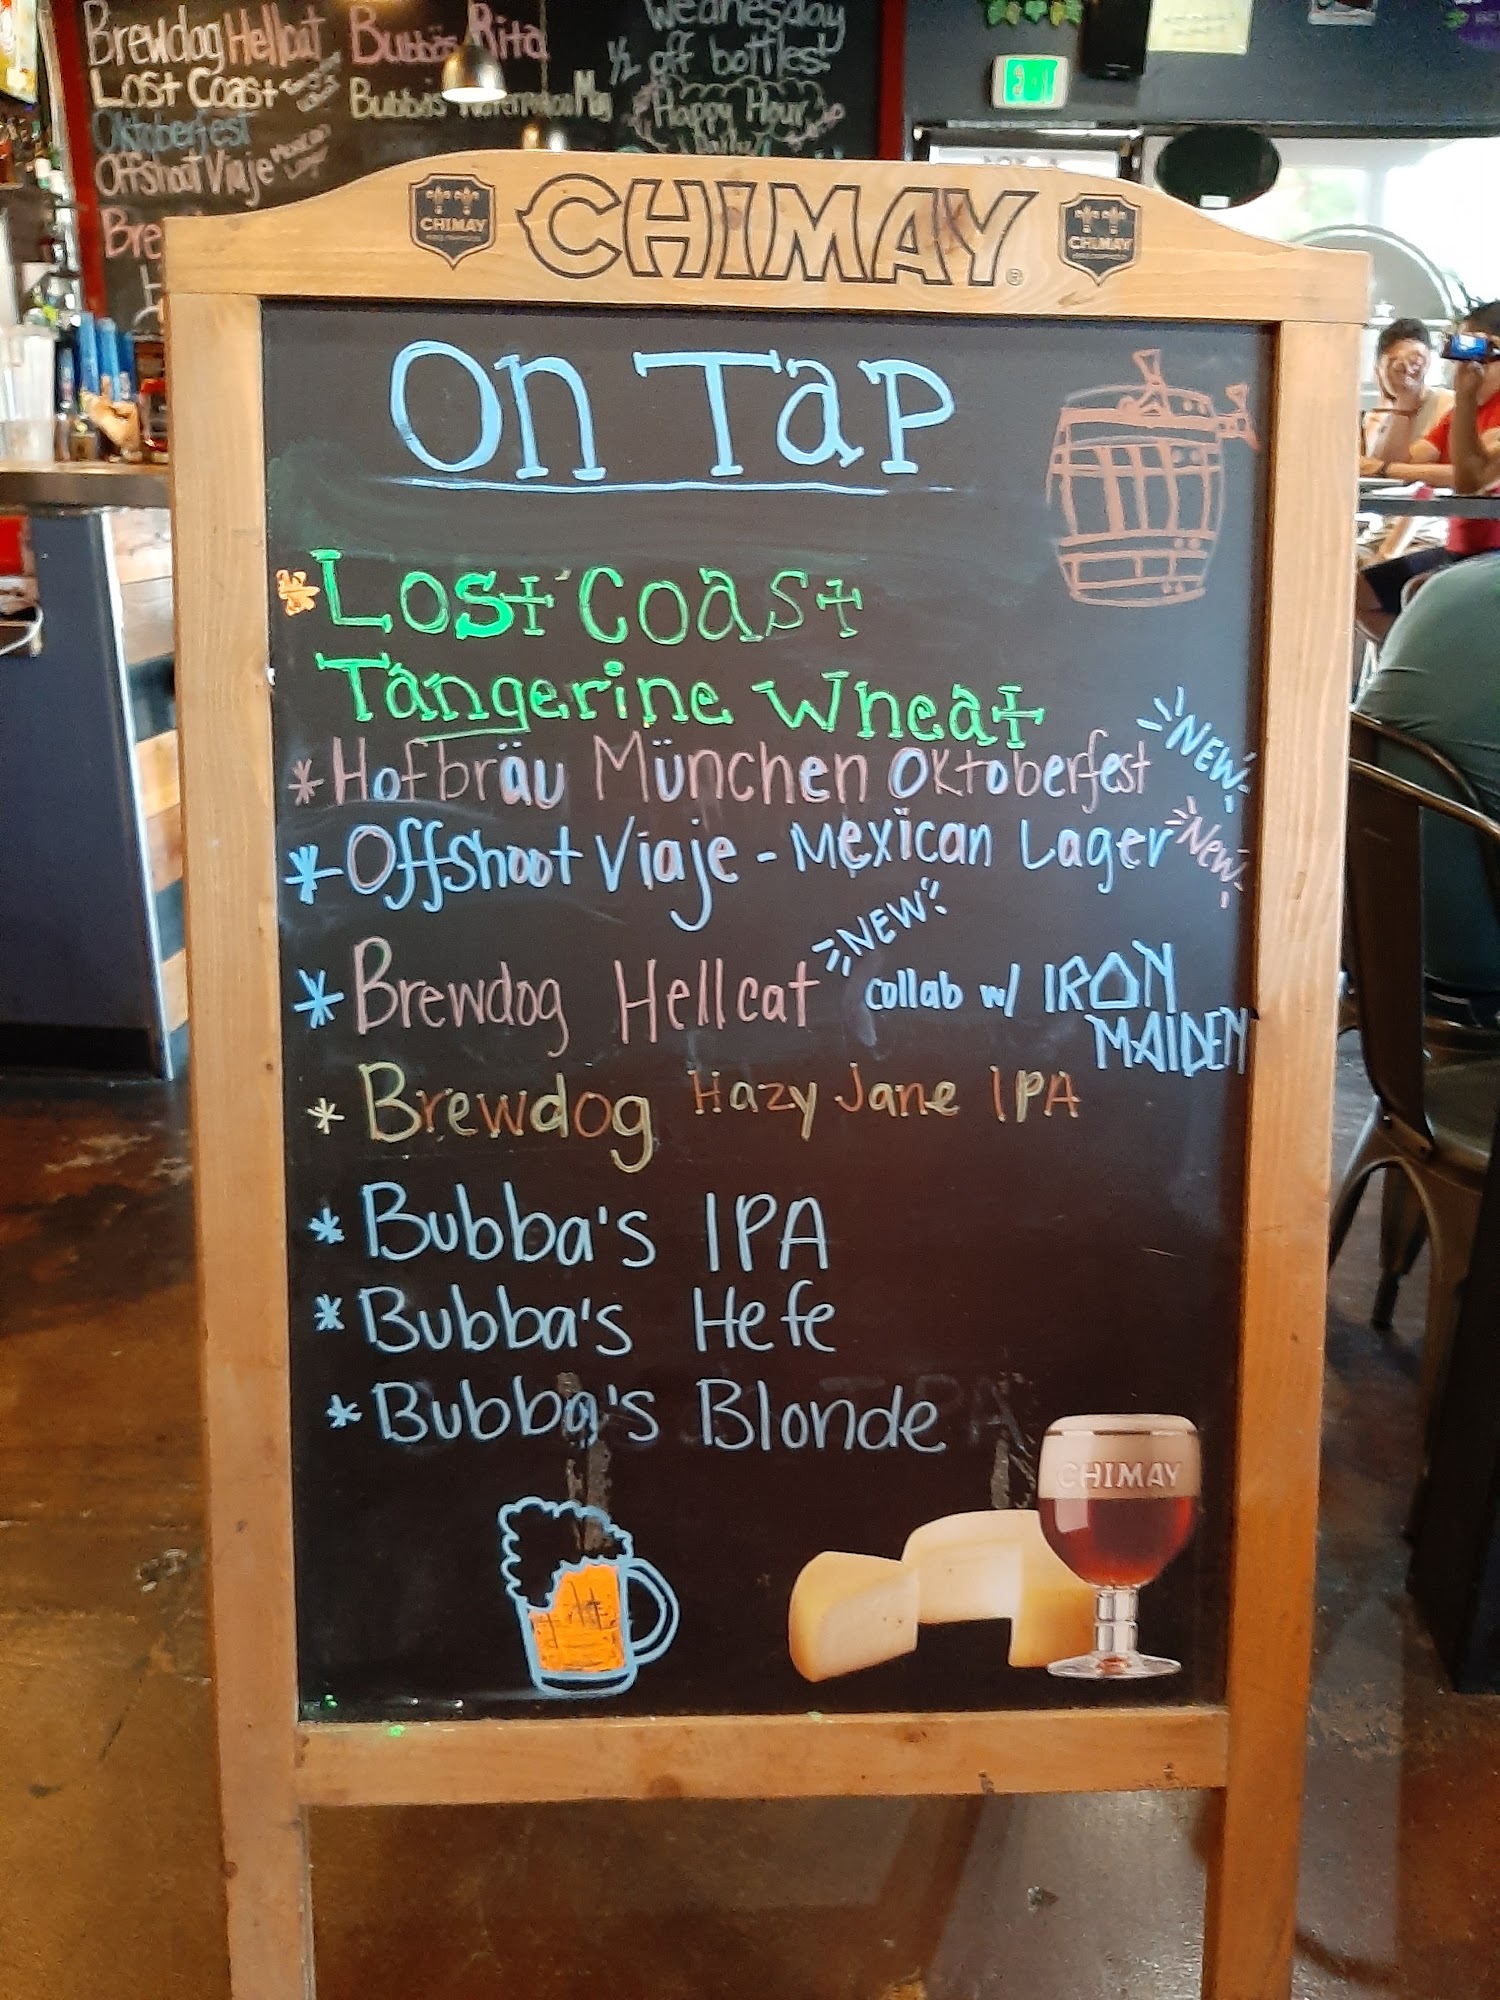 Brewdog Hellcat
Lost Coast
Oktoberfest
Offshoot Viaje Mexican Lager
Bre
Bubba's Rita
Bubba's
Wednesday
1/2 off bottles!
Happy Hour
Daily
CHIMAY
CHIMAY®
CHIMAY
On Tap
*Lost Coast
Tangerine Wheat
*Hofbräu München Oktoberfest NEW
*Offshoot Viaje - Mexican Lager New
*Brewdog Hellcat NEW collab w/ IRON
MAIDEN
*Brewdog Hazy Jane IPA
*Bubba's IPA
*Bubba's Hefe
*Bubba's Blonde
CHIMAY